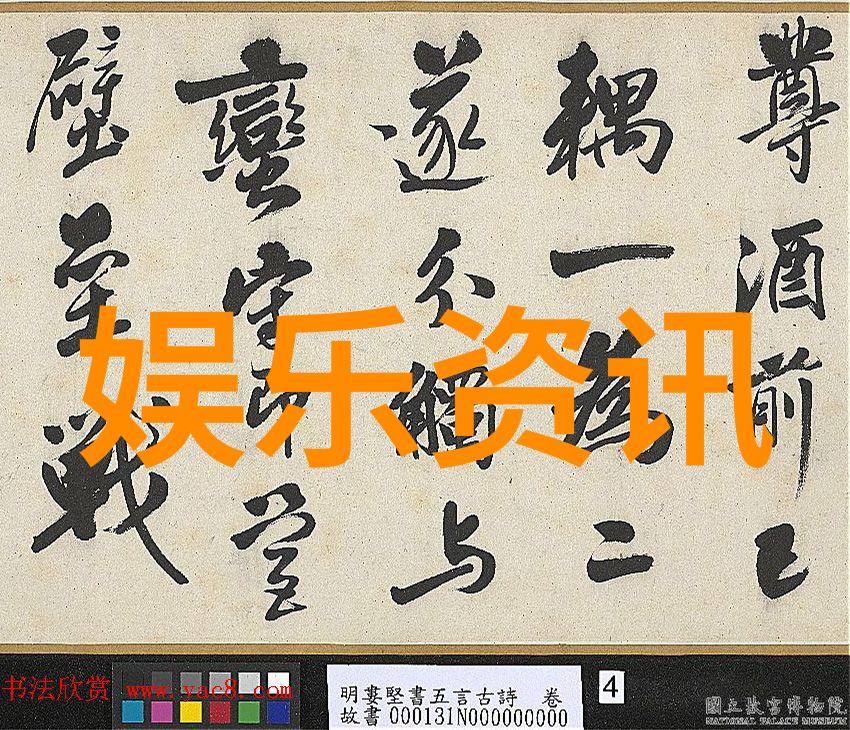 尊酒前已
耦一為二
遂分觸与
蠻守營
壁壘戰
娱乐资讯
书法欣赏 www.yac8.com
明婁堅書五言古詩 卷
故書 000131N000000000
4
國立故宮博物院
NATIONAL PALACE MUSEUM